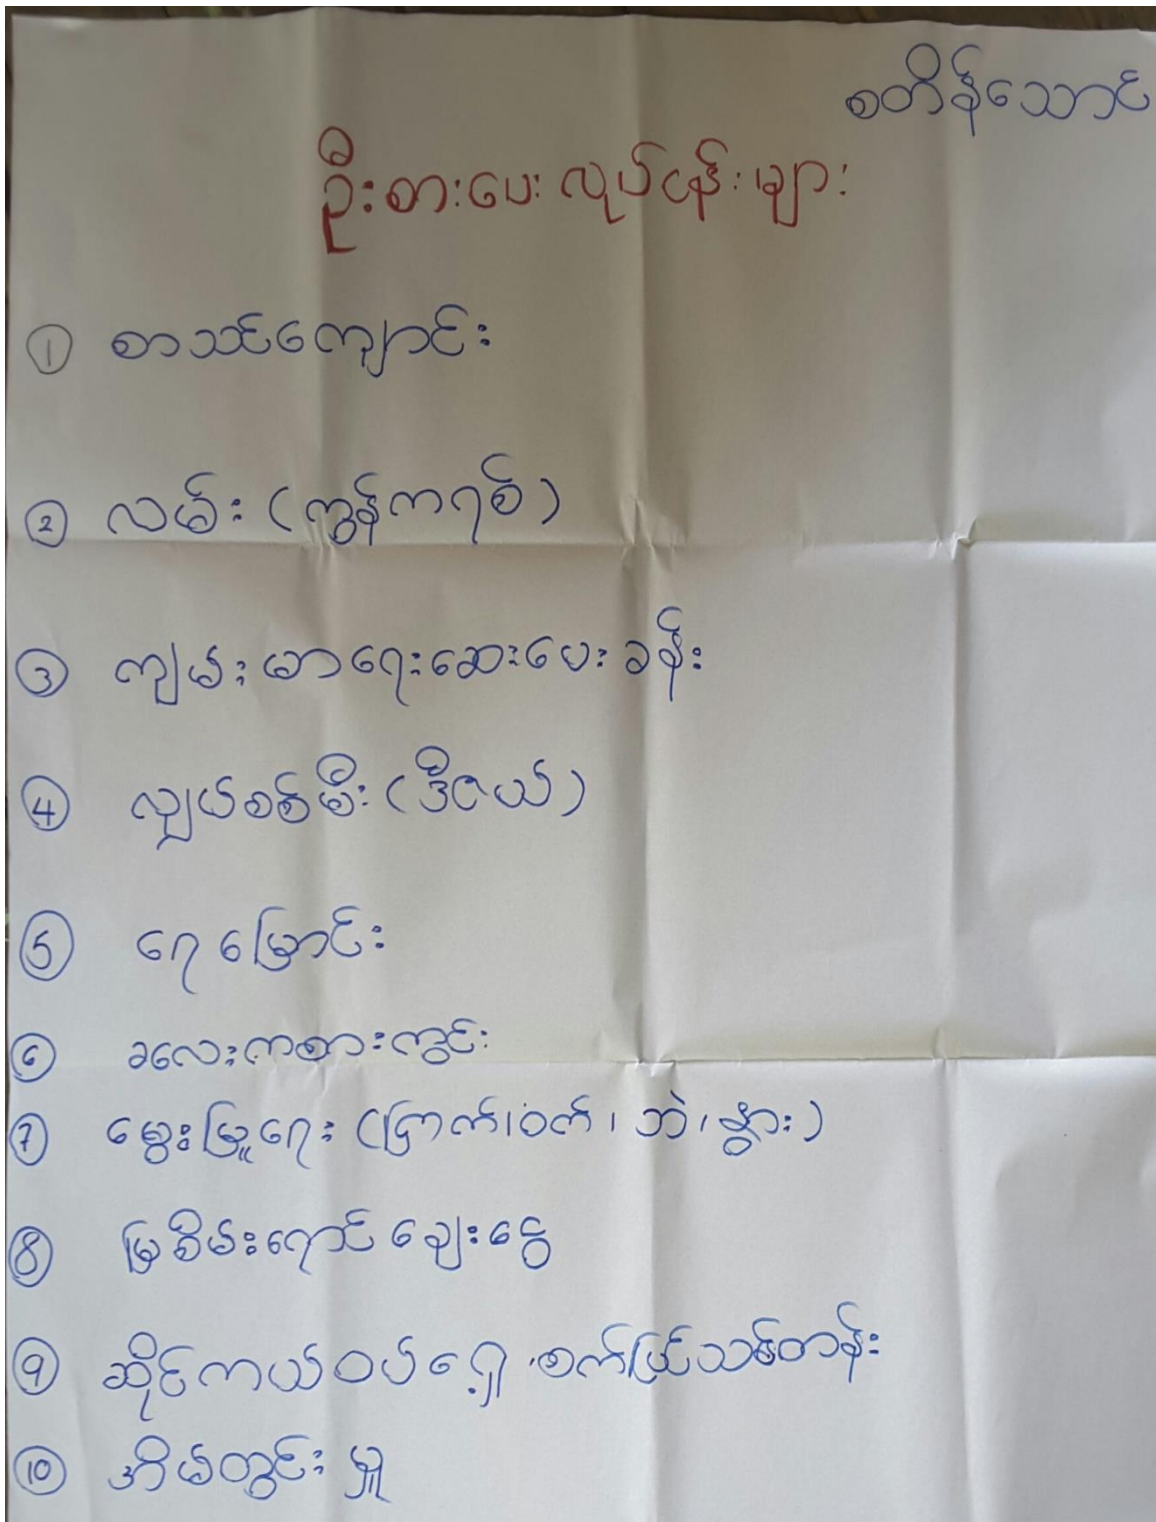 စတိန်သောင်
ဦးစားပေး လုပ်ငန်းများ
① စာသင်ကျောင်း
② လမ်း (ကွန်ကရစ်)
③ ကျမ်းမာရေးဆေးပေးခန်း
④ လျှပ်စစ်မီး (ဒီဇယ်)
⑤ ရေမြောင်း
⑥ ခလေးကစားကွင်း
⑦ မွေးမြူရေး (ကြက်၊ ဝက်၊ ဘဲ၊ နွား)
⑧ မြစိမ်းရောင် ချေးငွေ
⑨ ဆိုင်ကယ်ဝပ်ရှော့ စက်ပြင်သင်တန်း
⑩ အိမ်တွင်းမှု